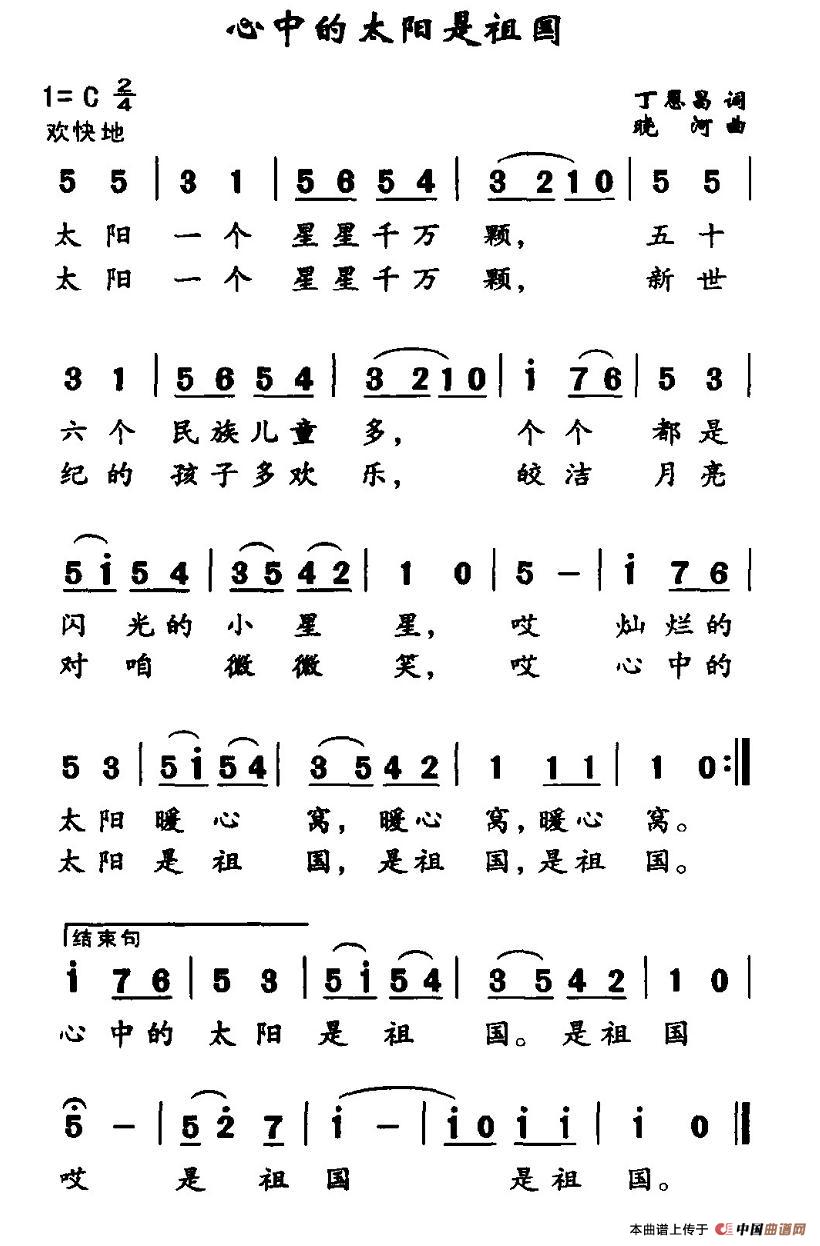 心中的太阳是祖国
1=C 2/4
丁恩昌 词
欢快地
晓 河 曲
5 5 | 3 1 | 5 6 5 4 | 3 2 1 0 | 5 5 |
太 阳 一 个 星 星 千 万 颗, 五 十
太 阳 一 个 星 星 千 万 颗, 新 世
3 1 | 5 6 5 4 | 3 2 1 0 | i 7 6 | 5 3 |
六 个 民 族 儿 童 多, 个 个 都 是
纪 的 孩 子 多 欢 乐, 皎 洁 月 亮
5 i 5 4 | 3 5 4 2 | 1 0 | 5 – | i 7 6 |
闪 光 的 小 星 星, 哎 灿 烂 的
对 咱 微 微 笑, 哎 心 中 的
5 3 | 5 i 5 4 | 3 5 4 2 | 1 1 1 | 1 0 :‖
太 阳 暖 心 窝, 暖 心 窝, 暖 心 窝。
太 阳 是 祖 国, 是 祖 国, 是 祖 国。
结束句
i 7 6 | 5 3 | 5 i 5 4 | 3 5 4 2 | 1 0 |
心 中 的 太 阳 是 祖 国。 是 祖 国
5 – | 5 2 7 | i – | i 0 i i | i 0 ‖
哎 是 祖 国 是 祖 国。
本曲谱上传于 中国曲谱网